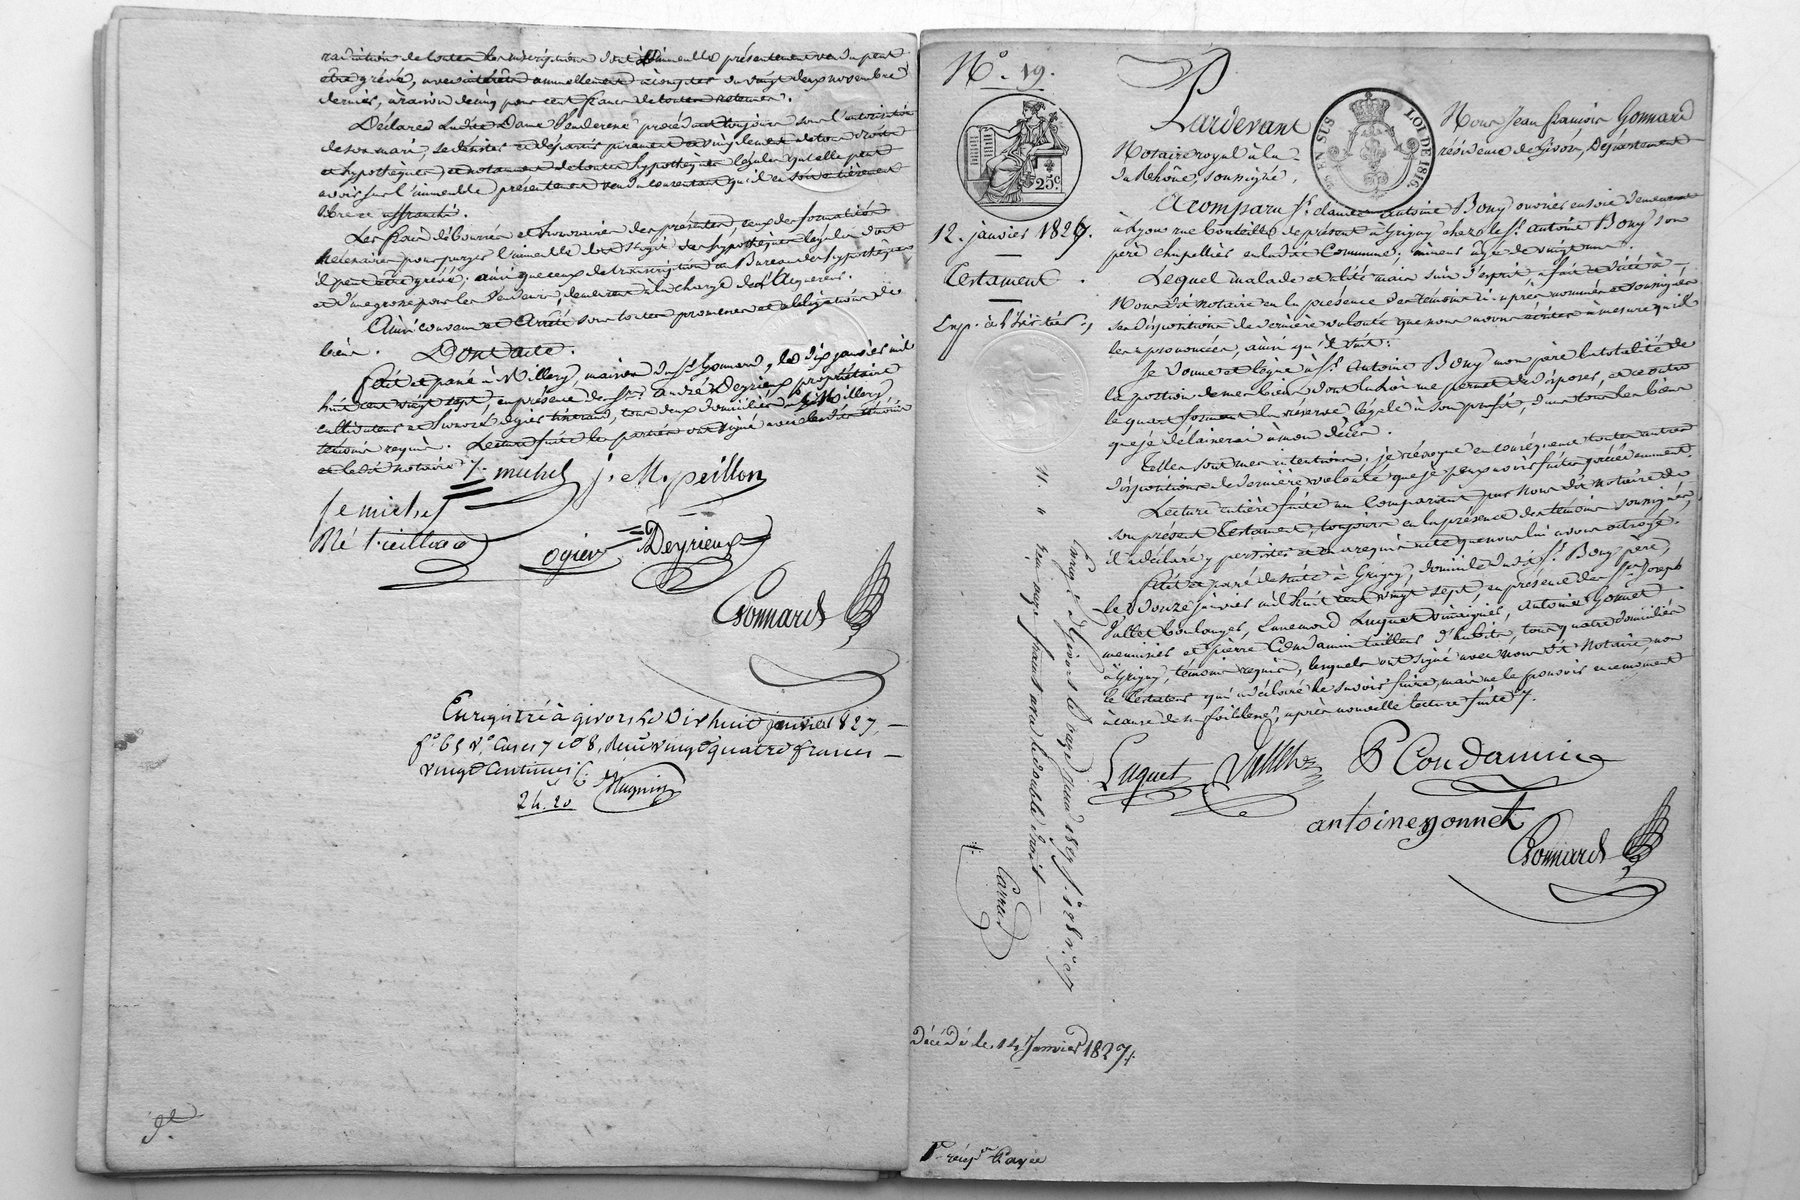 radiation de toutes les inscriptions dont l'immeuble présentement vendu peut
être grévé, avec intérêts annuellement à compter du vingt deux novembre
dernier, à raison de cinq pour cent franc de toutes retenues.
Déclare ladite Dame venderesse procédant toujours sous l'autorisation
de son mari, se désister et départir purement et simplement de tous droits
et hypothèques et notament de toutes hypothèques légales qu'elle peut
avoir sur l'immeuble présentement vendu consentant qu'il en soit entièrement
libre et affranchi.
Les frais déboursés et honoraires des présentes, ceux des formalités
nécessaires pour purger l'immeuble des hypothèques légales dont
il peut être grévé, ainsi que ceux de transcription au Bureau des hypothèques
et d'une grosse pour les vendeurs, demeurent à la charge de l'acquéreur.
Ainsi convenu et arrêté sous toutes promesses et obligations de
biens. Dont acte.
Fait et passé à Millery, maison du Sr. Gonnard, le dix janvier mil
huit cent vingt sept, en présence des Srs. André Deyrieux propriétaire
cultivateur et ogier, tous deux domiciliés à Millery
témoins requis. Lecture faite les parties ont signé avec lesdits témoins
et ledit notaire. michel J. M. peillon
michel
ogier Deyrieux
Gonnard
Enregistré à givors le Dix huit janvier 1827,
f° 65 v° Cases 7 et 8, Reçu vingt quatre francs
vingt Centimes
24.20 Magnin
N°. 19.
25c
EN SUS
LOI DE 1816
12. janvier 1827.
Testament.
Pardevant Nous Jean françois Gonnard
Notaire royal à la résidence de Givors, Département
du Rhône, soussigné,
A comparu Sr. claude Antoine Bony ouvrier en soie demeurant
à Lyon rue Bouteille de présent à Grigny chez le Sr. Antoine Bony son
père chapellier en ladite Commune, mineur âgé de vingt ans.
Lequel malade et alité mais sain d'esprit a fait et dicté à
Nous dit notaire en la présence des témoins ci-après nommés et soussignés
ses dispositions de dernière volonté que nous avons écrites à mesure qu'il
les a prononcées, ainsi qu'il suit:
Je donne et lègue à Sr. Antoine Bony mon père la totalité de
la portion de mes biens dont la loi me permet de disposer, et ce outre
le quart formant la réserve légale à son profit, dans tous les biens
que je délaisserai à mon décès.
Telles sont mes intentions: je révoque en conséquence toutes autres
dispositions de dernière volonté que je peux avoir faites précédemment.
Lecture entière faite au Comparant par Nous dit notaire de
son présent testament, toujours en la présence des témoins soussignés,
il a déclaré y persister et en a requis acte que nous lui avons octroyé.
Fait et passé de suite à Grigny, domicile dudit Sr. Bony père,
le douze janvier mil huit cent vingt sept, en présence des Srs. Joseph
Vallet boulanger, Ennemond Luquet vinaigrier, Antoine Yonnet
menuisier et pierre Condamin tailleur d'habits, tous quatre domiciliés
à Grigny, témoins requis, lesquels ont signé avec nous dit Notaire, non
le testateur qui a déclaré le savoir faire, mais ne le pouvoir en ce moment
à cause de sa faiblesse, après nouvelle lecture faite.
Luquet Vallet P Condamin
antoine yonnet
Gonnard
Décédé le 14 Janvier 1827.